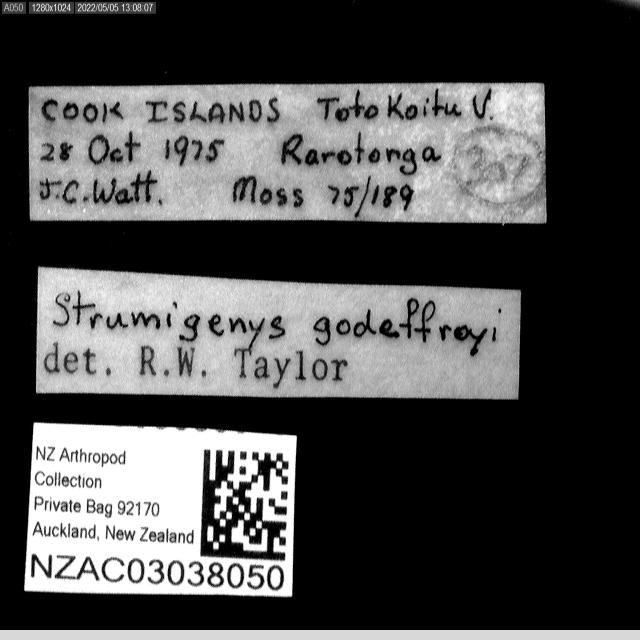 A050 1280x1024 2022/05/05 13:08:07
COOK ISLANDS Toto Koitu V.
28 Oct 1975 Rarotonga
J.C. Watt. Moss 75/189
Strumigenys godeffroyi
det. R.W. Taylor
NZ Arthropod
Collection
Private Bag 92170
Auckland, New Zealand
NZAC03038050